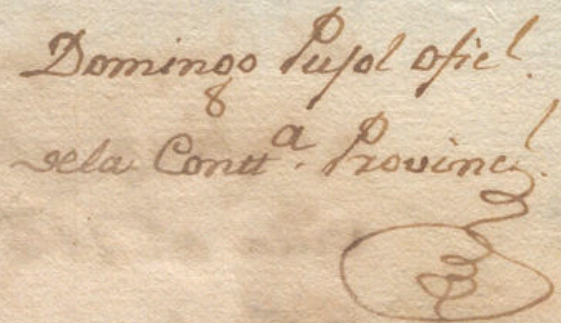 Domingo Pujol ofic.l
dela Contt.a Provinc.l